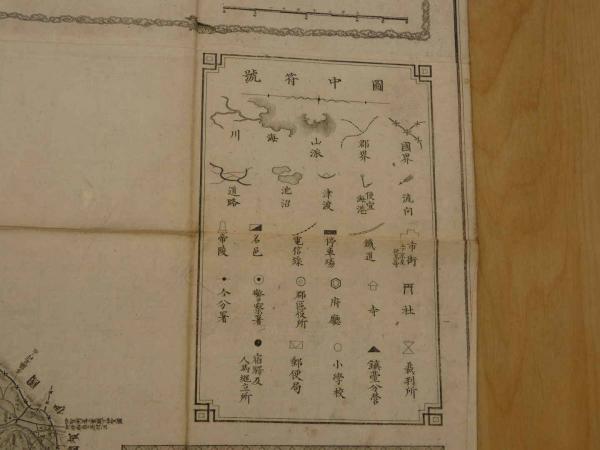 圖中符號
國界
郡界
山派
海
川
流向
便宜海港
津渡
池沼
道路
市街
鐵道
停車場
電信線
名邑
帝陵
社
寺
府廳
郡區役所
警察署
仝分署
裁判所
鎮臺分營
小學校
郵便局
宿驛及人馬継立所